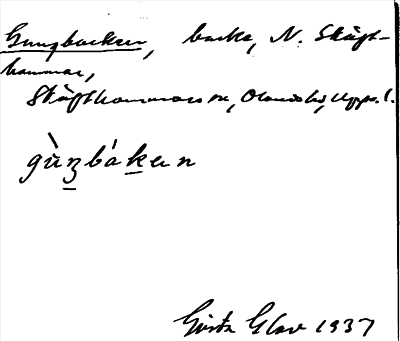 Gunzbacken, backe, N. Skäft-
hammar,
Skäfthammars sn, Olands hd, Upps. l.
gùnzbáken
Gösta Glav 1937